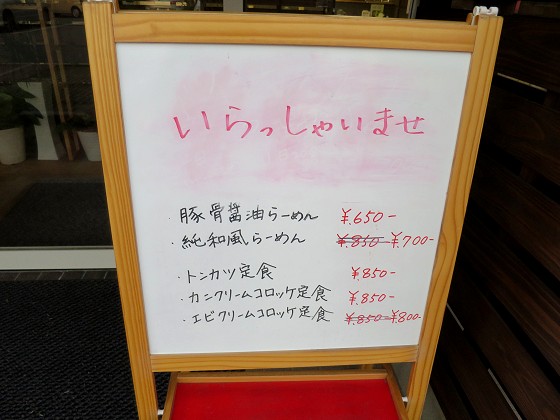 いらっしゃいませ
・豚骨醤油らーめん ¥650-
・純和風らーめん ¥850- ¥700-
・トンカツ定食 ¥850-
・カニクリームコロッケ定食 ¥850-
・エビクリームコロッケ定食 ¥850- ¥800-